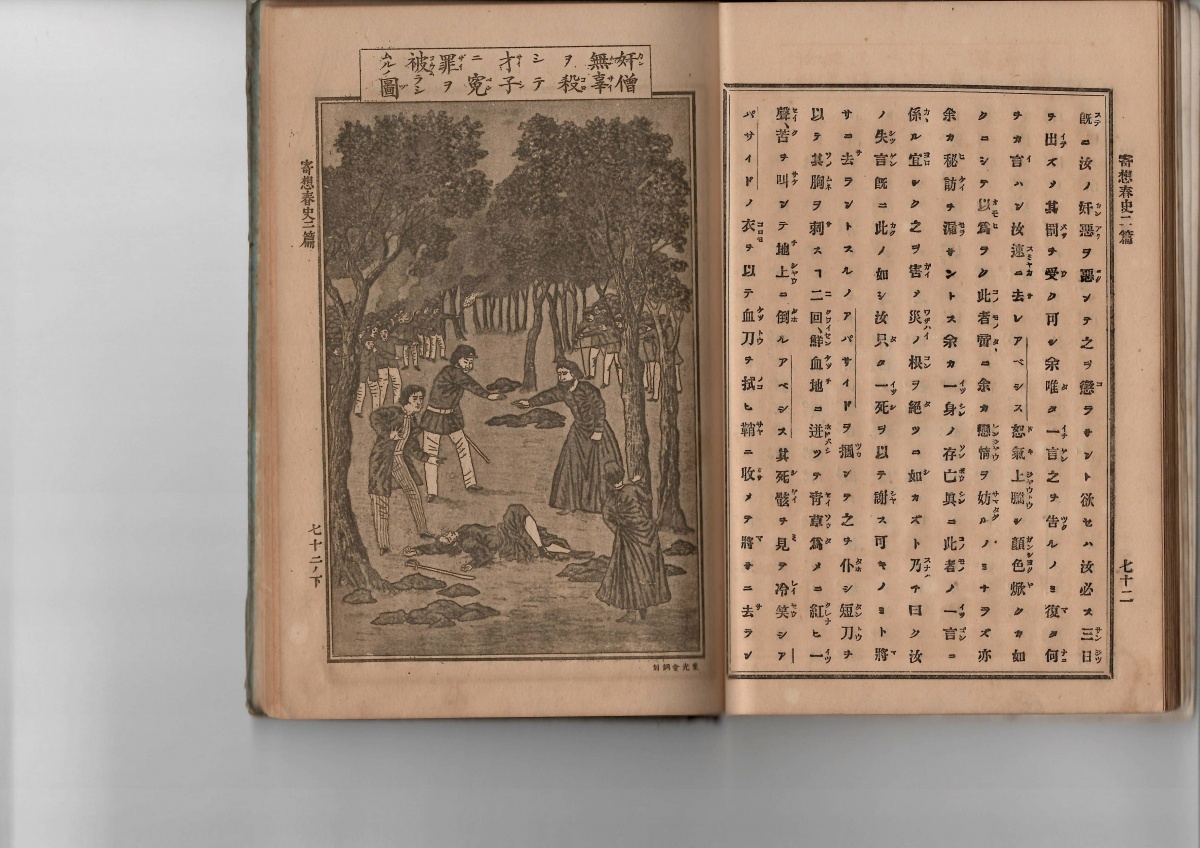 寄想春史二篇
七十二
既ニ汝ノ奸惡ヲ惡ンテ之ヲ懲ラサント欲セハ汝必ス三日
ヲ出ズメ其罰ヲ受ク可シ余唯タ一言之ヲ告ルノミ復タ何
ヲカ言ハン汝速ニ去レアベシス怒氣上騰シ顔色焮クカ如
クニシテ以爲ラク此者啻ニ余カ戀情ヲ妨ルノミナラズ亦
余カ秘訪ヲ漏サントス余カ一身ノ存亡眞ニ此者ノ一言ニ
係ル宜シク之ヲ害メ災ノ根ヲ絶ツニ如カズト乃チ曰ク汝
ノ失言既ニ此ノ如シ汝只タ一死ヲ以テ謝ス可キノミト將
サニ去ラントスルノアパサイドヲ摑ンテ之ヲ仆シ短刀ヲ
以テ其胸ヲ刺スヿ二回、鮮血地ニ迸ツテ青草爲メニ紅ヒ一
聲、苦ヲ叫ンテ地上ニ倒ルアベシス其死骸ヲ見テ冷笑シア
パサイドノ衣ヲ以テ血刀ヲ拭ヒ鞘ニ收メテ將サニ去ラン
奸僧
無辜
ヲ殺
シテ
才子
ニ冤
罪ヲ
被ラシ
ムルノ圖
寄想春史二篇
七十二ノ下